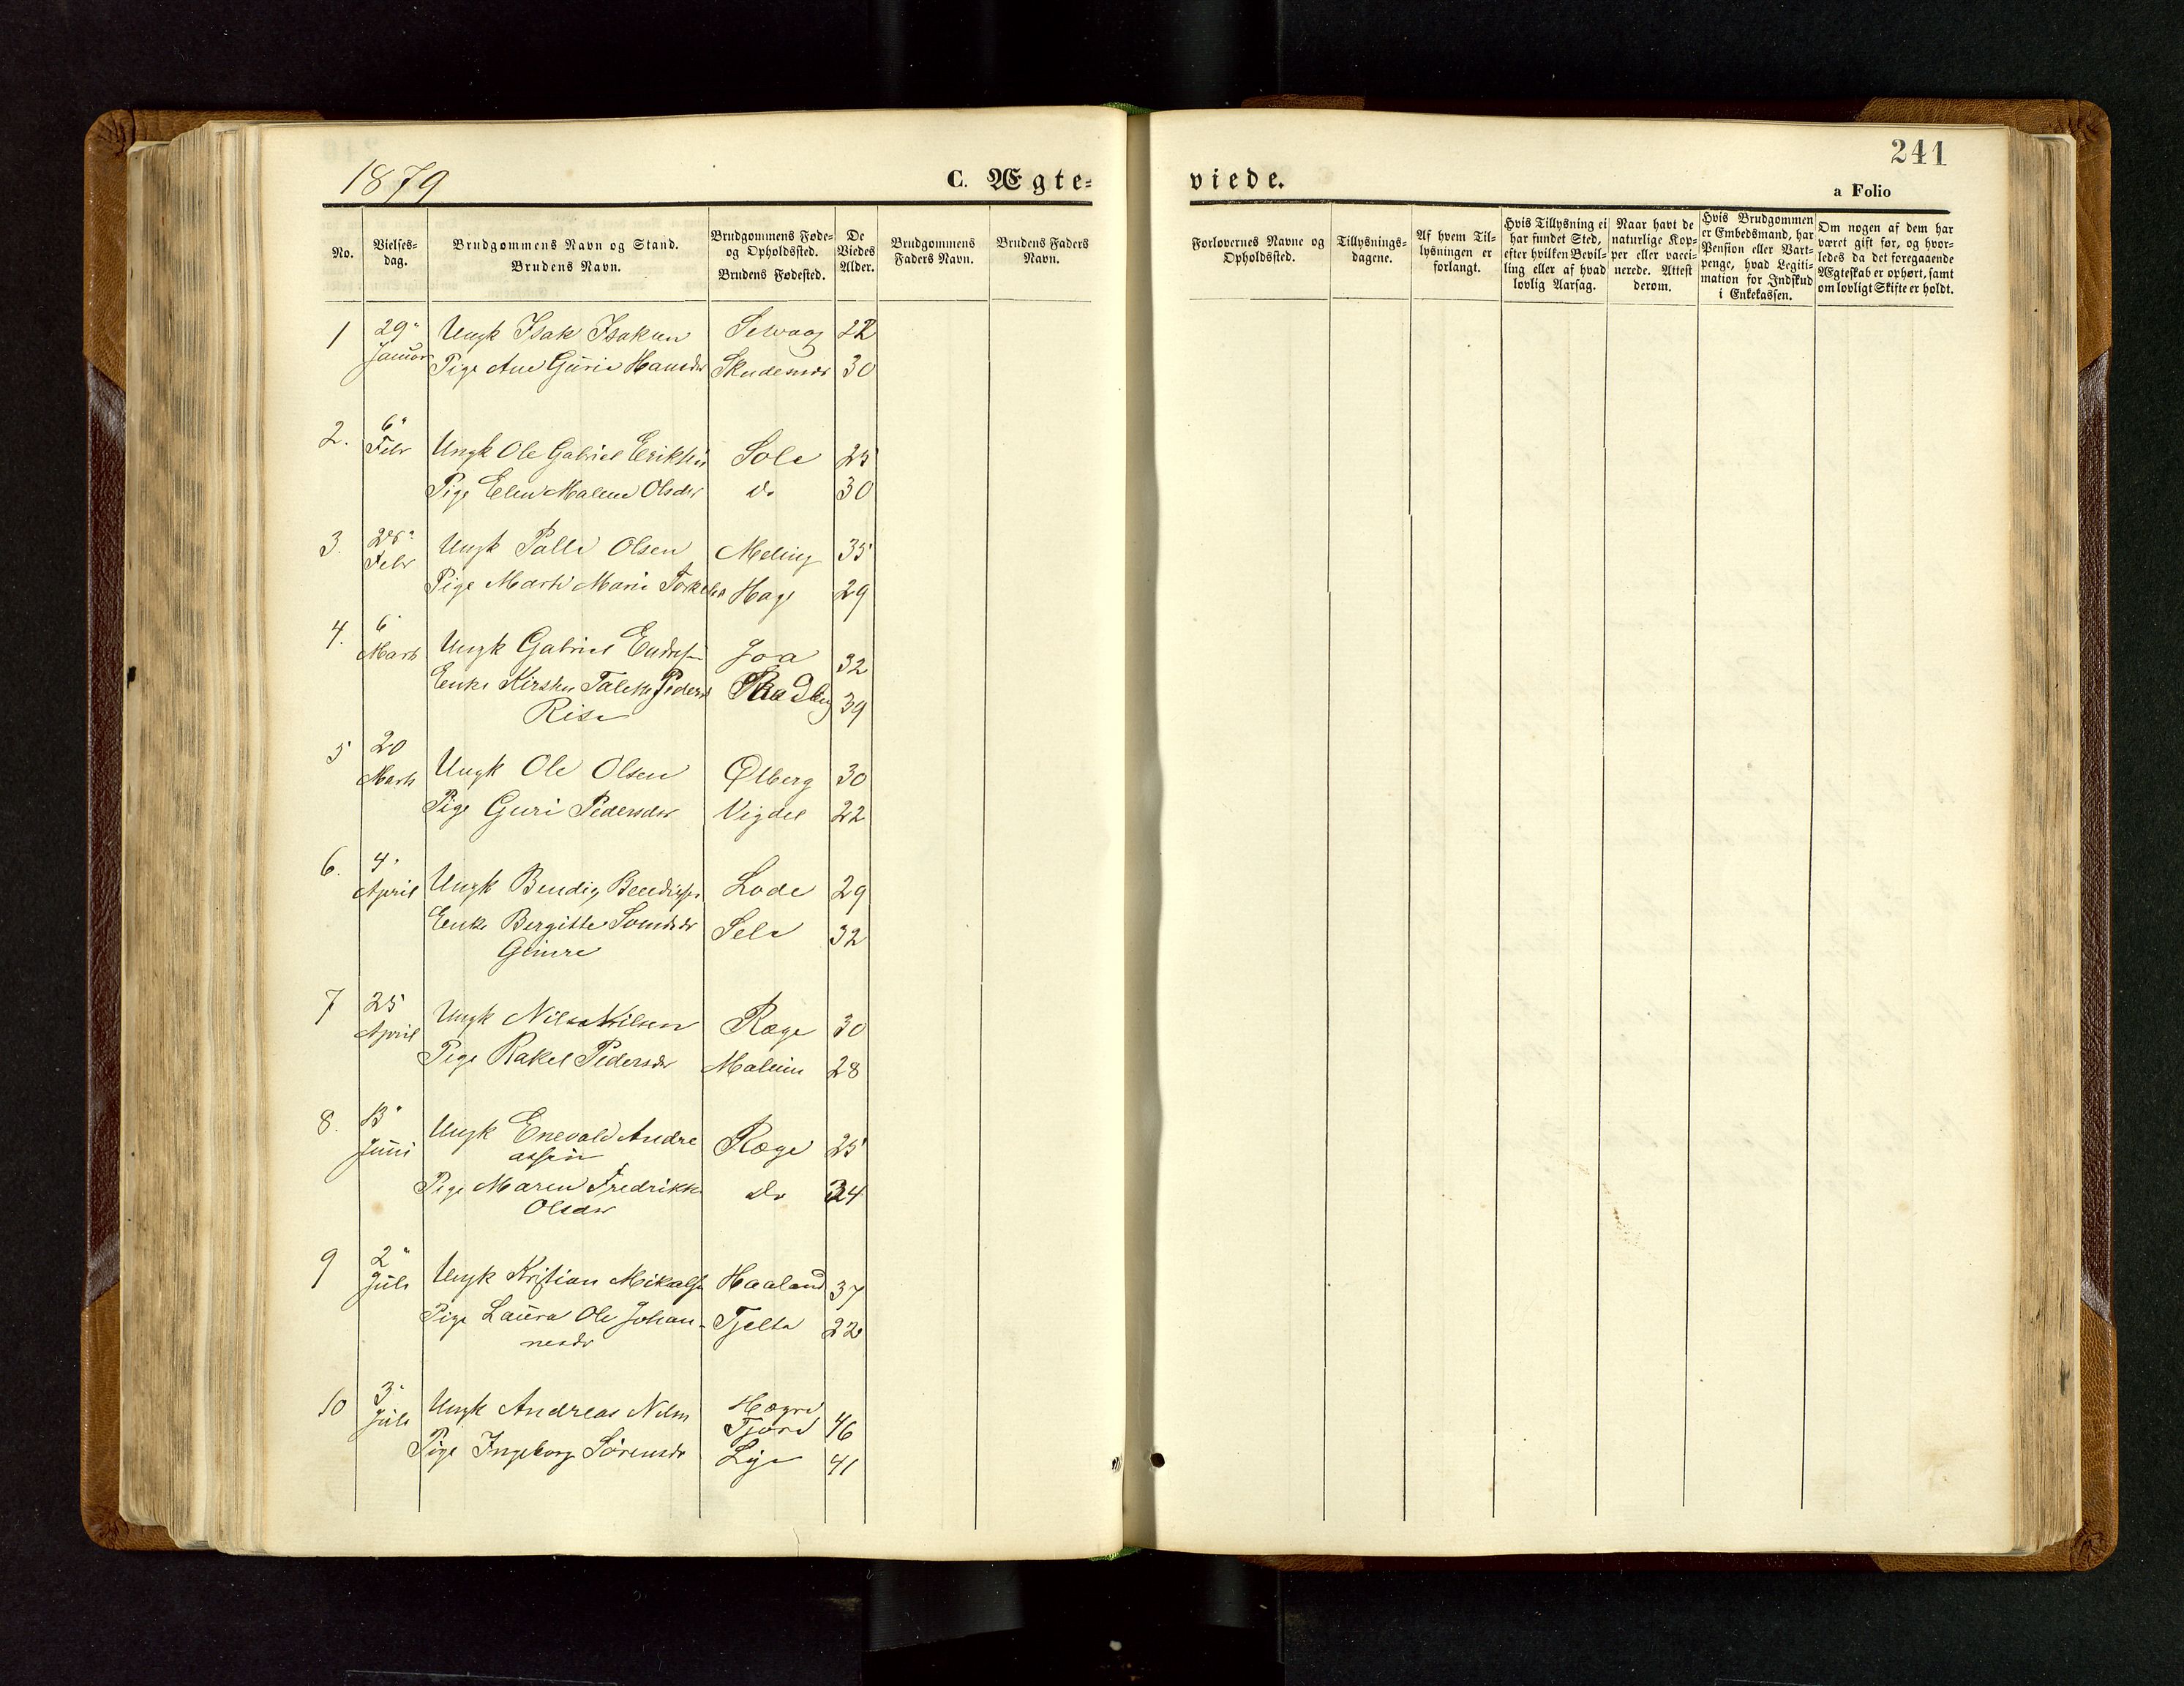 1879
C. Ægte-
viede.
241
a Folio
No.
Vielses-
dag.
Brudgommens Navn og Stand.
Brudens Navn.
Brudgommens Føde-
og Opholdssted.
Brudens Fødested.
De
Viedes
Alder.
Brudgommens
Faders Navn.
Brudens Faders
Navn.
Forlovernes Navne og
Opholdssted.
Tillysnings-
dagene.
Af hvem Til-
lysningen er
forlangt.
Hvis Tillysning ei
har fundet Sted,
efter hvilken Bevil-
ling eller af hvad
lovlig Aarsag.
Naar havt de
naturlige Kop-
per eller vacci-
nerede. Attest
derom.
Hvis Brudgommen
er Embedsmand, har
Pension eller Vart-
penge, hvad Legiti-
mation for Indskud
i Enkekassen.
Om nogen af dem har
været gift før, og hvor-
ledes da det foregaaende
Ægteskab er ophørt, samt
om lovligt Skifte er holdt.
1 29 Januar Ungk Isak Isaksen 22
Pige Ane Gurie Hansdr Skudesnes 30
2. 6 Febr Ungk Ole Gabriel Eriksen Sole 25
Pige Elen Malene Olsdr do 30
3. Febr Ungk Palle Olsen Meling 35
Pige Marte Marie Hage 29
4. 6 Marts Ungk Gabriel Endresen Joa 32
Enke Kirsten Talette Pedersd 39
Risa
5 20 Marts Ungk Ole Olsen Ølberg 30
Pige Guri Pedersdr Vigdel 22
6. 4 April Ungk Bendix Bendixsen Lode 29
Enke Bergitte Sele 32
Gimre
7 25 April Ungk Nils Nilsen Ræge 30
Pige Rakel Pedersdr Malmin 28
8. 13 Juni Ungk Enevald Andre
assen Ræge 25
Pige Maren Fredrikke do 24
Olsdr
9 2 Juli Ungk Kristian Mikalsen Haaland 37
Pige Laura Ole Johan- Tjelta 22
nesdr
10 3 Juli Ungk Andreas Nilsen Høgre
Tjord 46
Pige Ingeborg Sørensdr Lye 41